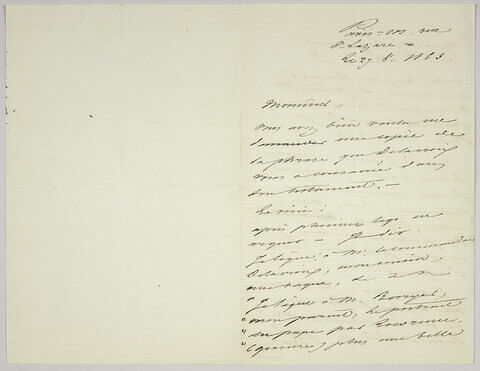 Paris – 101. rue
St Lazare –
Le 27 8bre 1863.
Monsieur,
Vous avez bien voulu me
demander une copie de
la phrase que Delacroix
vous a consacrée dans
son testament. –
La voici:
après plusieurs legs en
– Je dis:
Je lègue, à Mr le commandant
Delacroix, mon cousin,
une bague, &
"Je lègue à M. Bornot,
"mon parent, le portrait
"du pape par Lawrence,
"(gravure) plus une belle